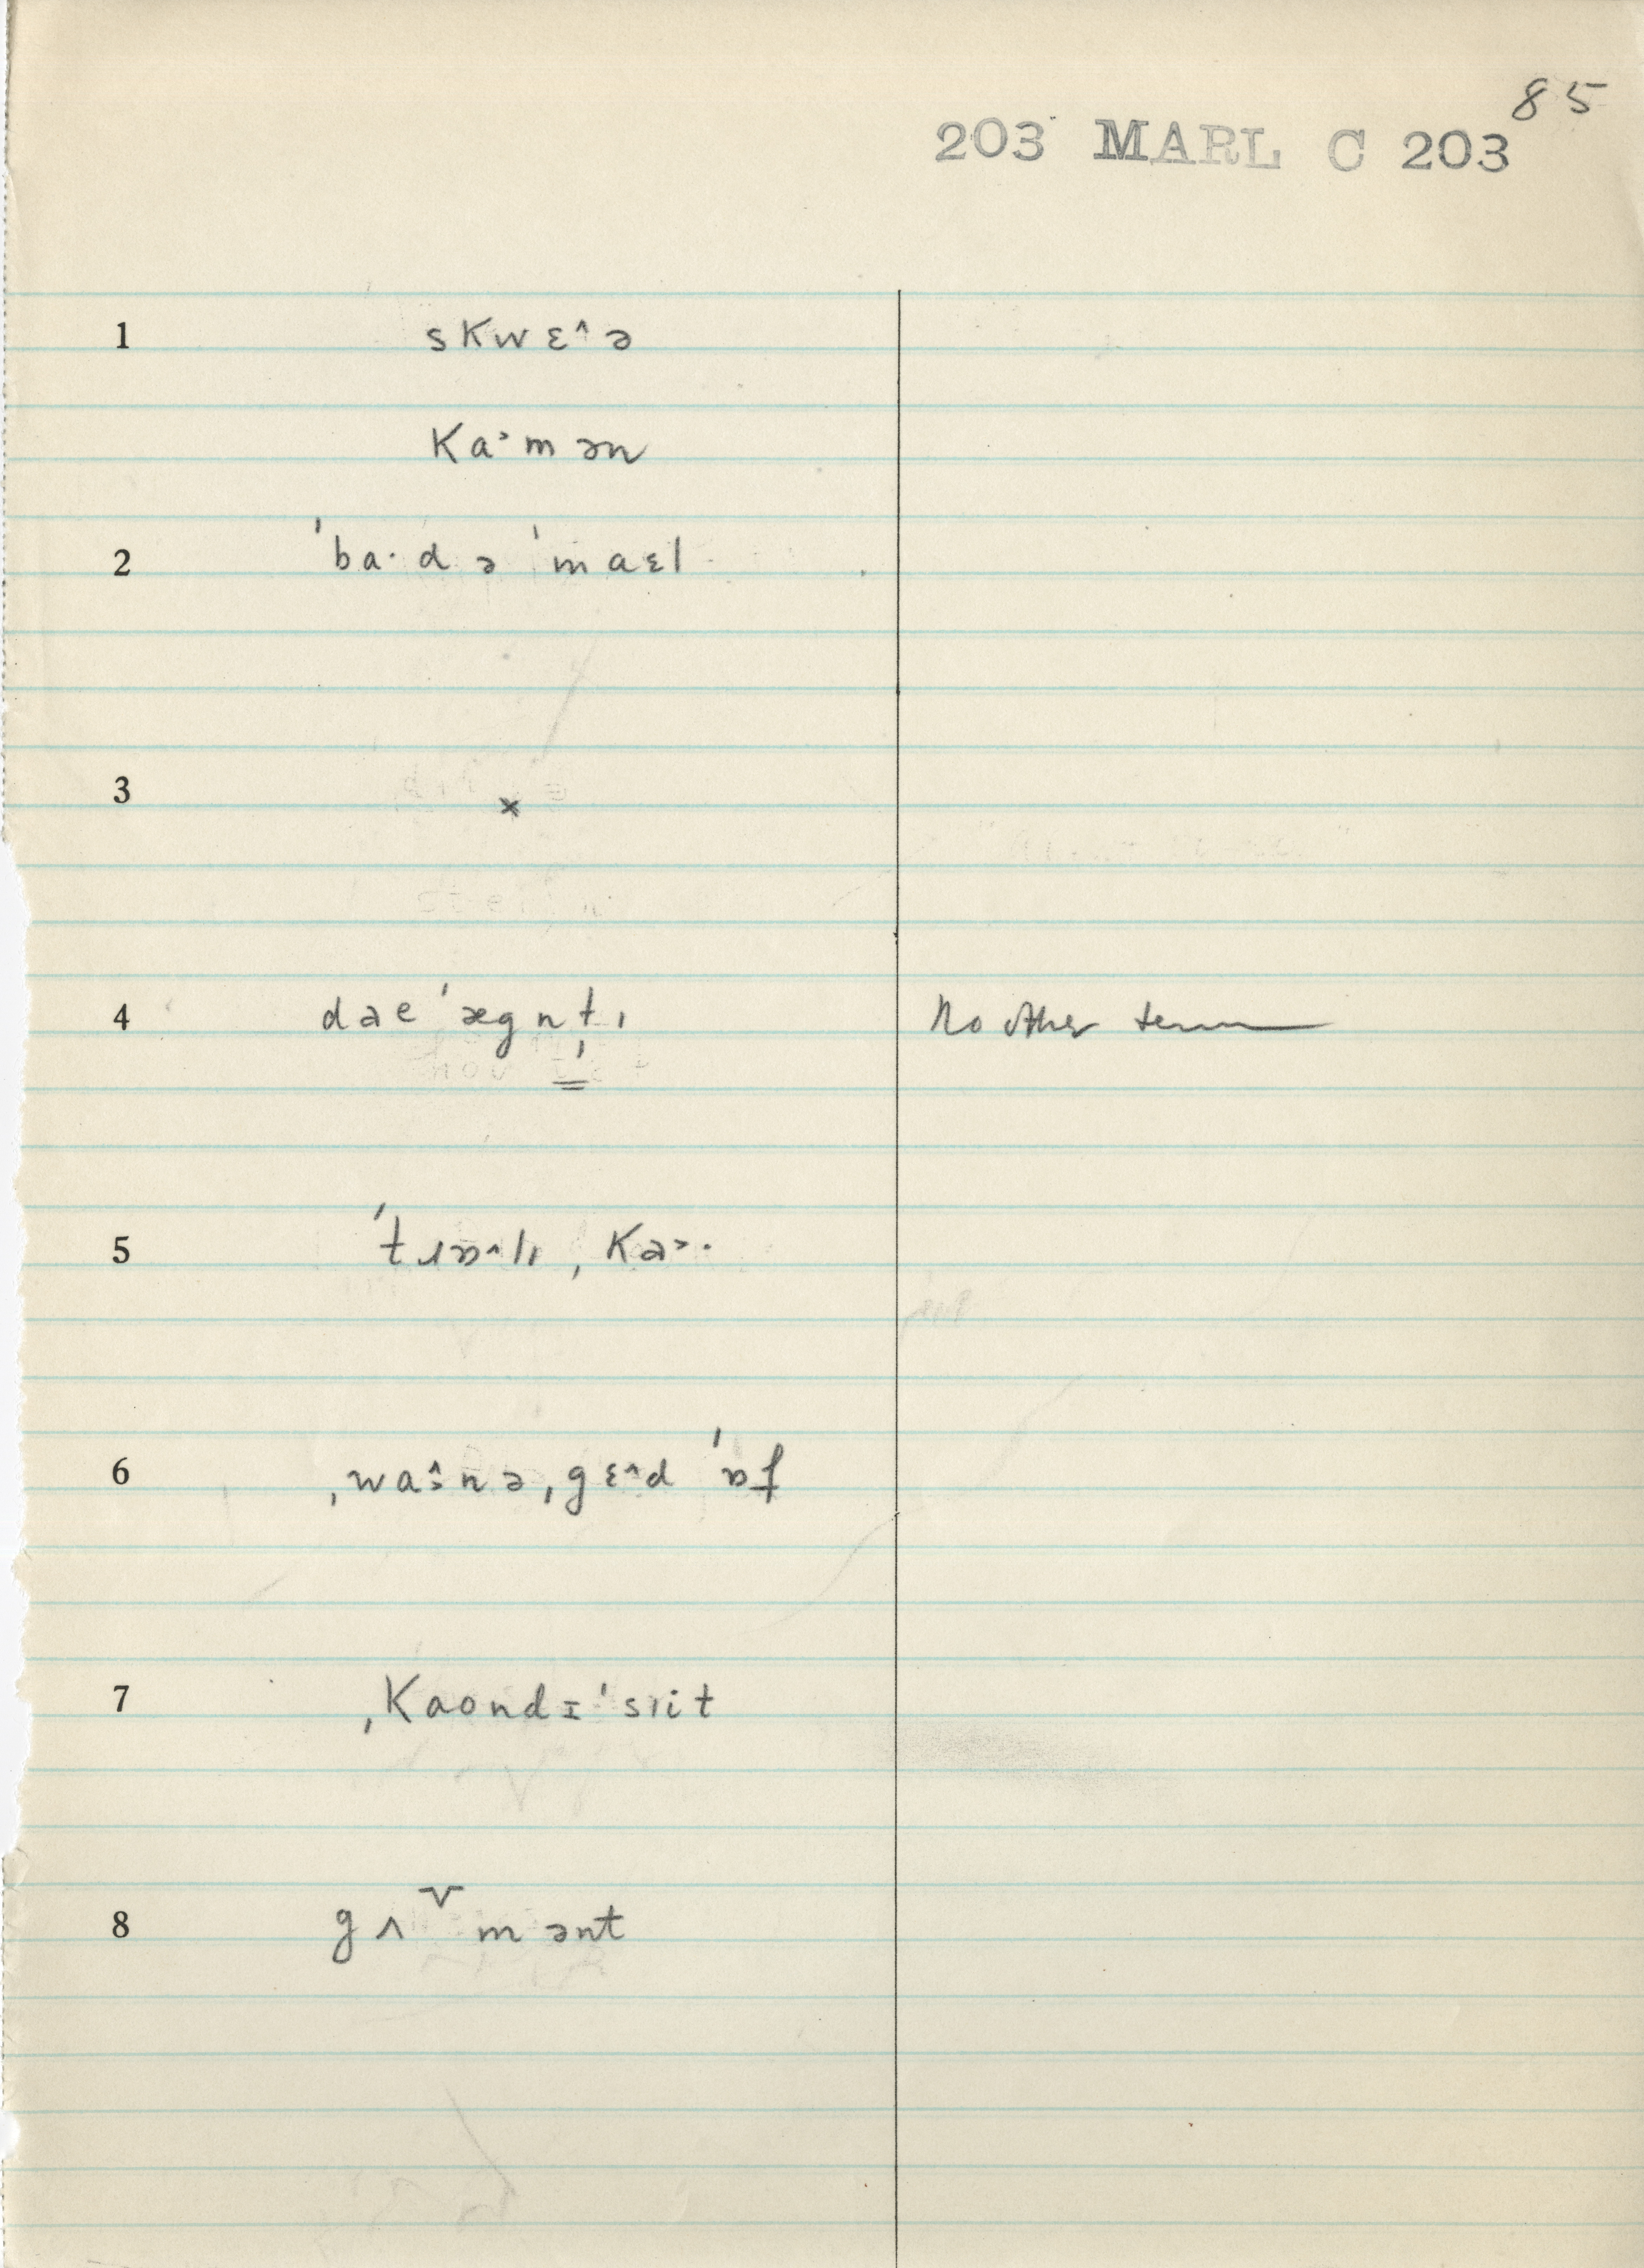 85
203 MARL C 203
1 skwɛ^ə
ka˃mən
2 ˈba·dəˈmaɛl
3 ×
4 dəeˈægnˌtɪ No other term
5 ˈtɹɒ^lɪ ˌkə˃·
6 ˌwa^ːnəˌgɛ^d ˈɒf
7 ˌkaondɪˈsɪit
8 gʌ˅mənt